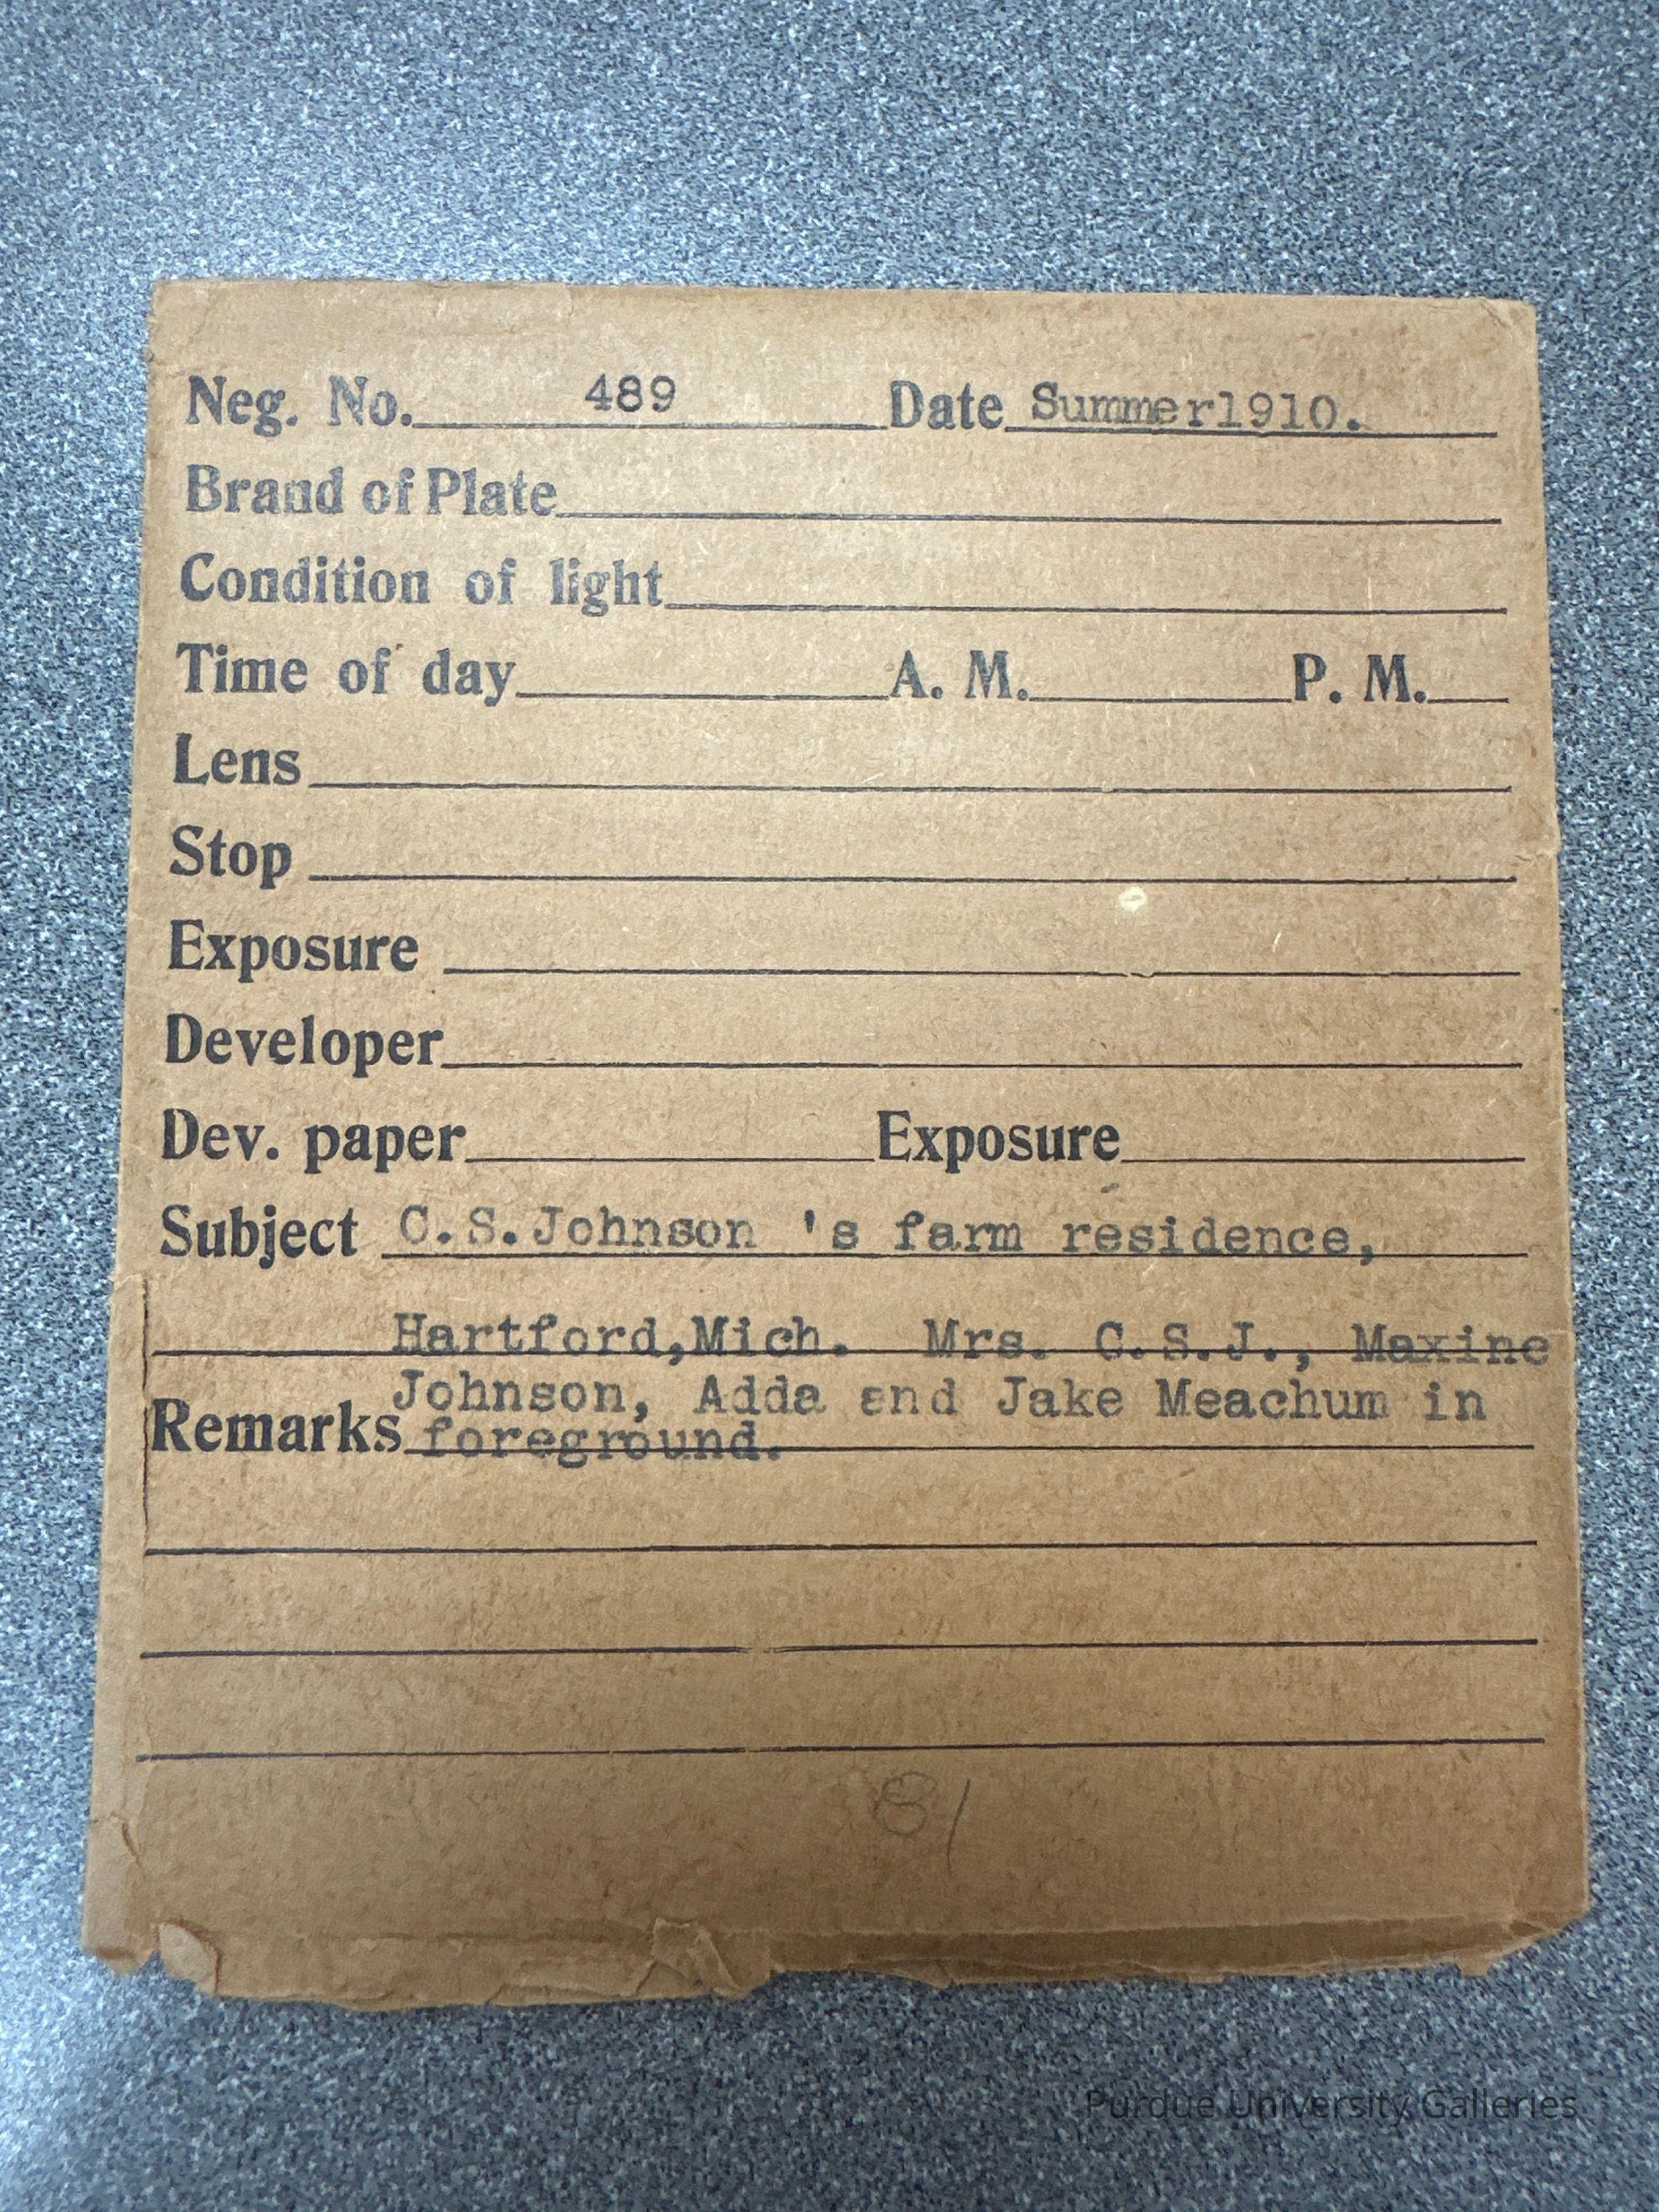 Neg. No. 489 Date Summer1910.
Brand of Plate
Condition of light
Time of day A. M. P. M.
Lens
Stop
Exposure
Developer
Dev. paper Exposure
Subject C.S.Johnson 's farm residence,
Hartford,Mich. Mrs. C.S.J., Maxine
Johnson, Adda and Jake Meachum in
Remarks foreground.
Purdue University Galleries